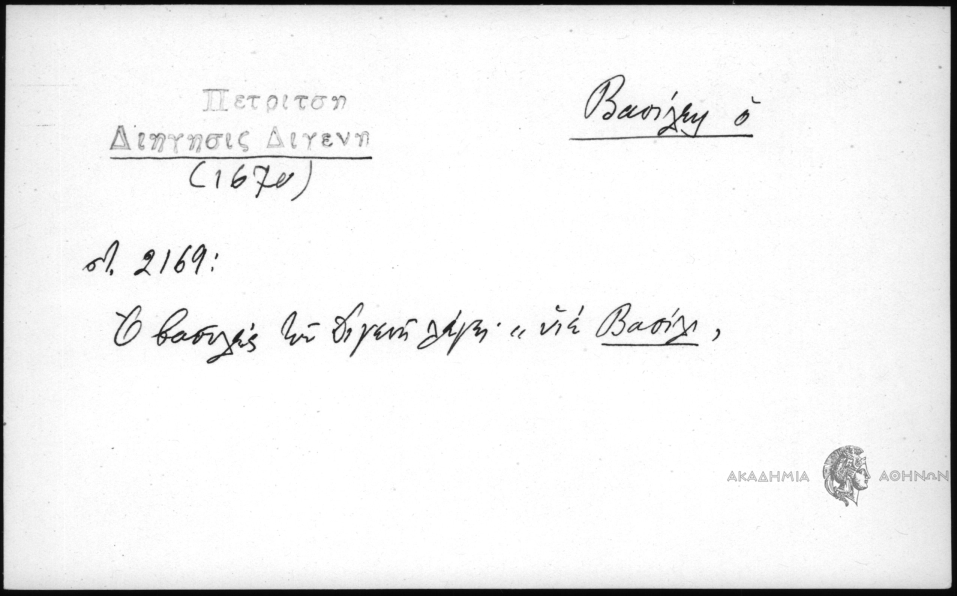 Πετρίτση
Διήγησις Διγενῆ
(1670)
Βασίλης ὁ
στ. 2169:
Ὁ βασιλιὰς τοῦ Διγενῆ λέγει· «υἱὲ Βασίλι,
ΑΚΑΔΗΜΙΑ ΑΘΗΝΩΝ